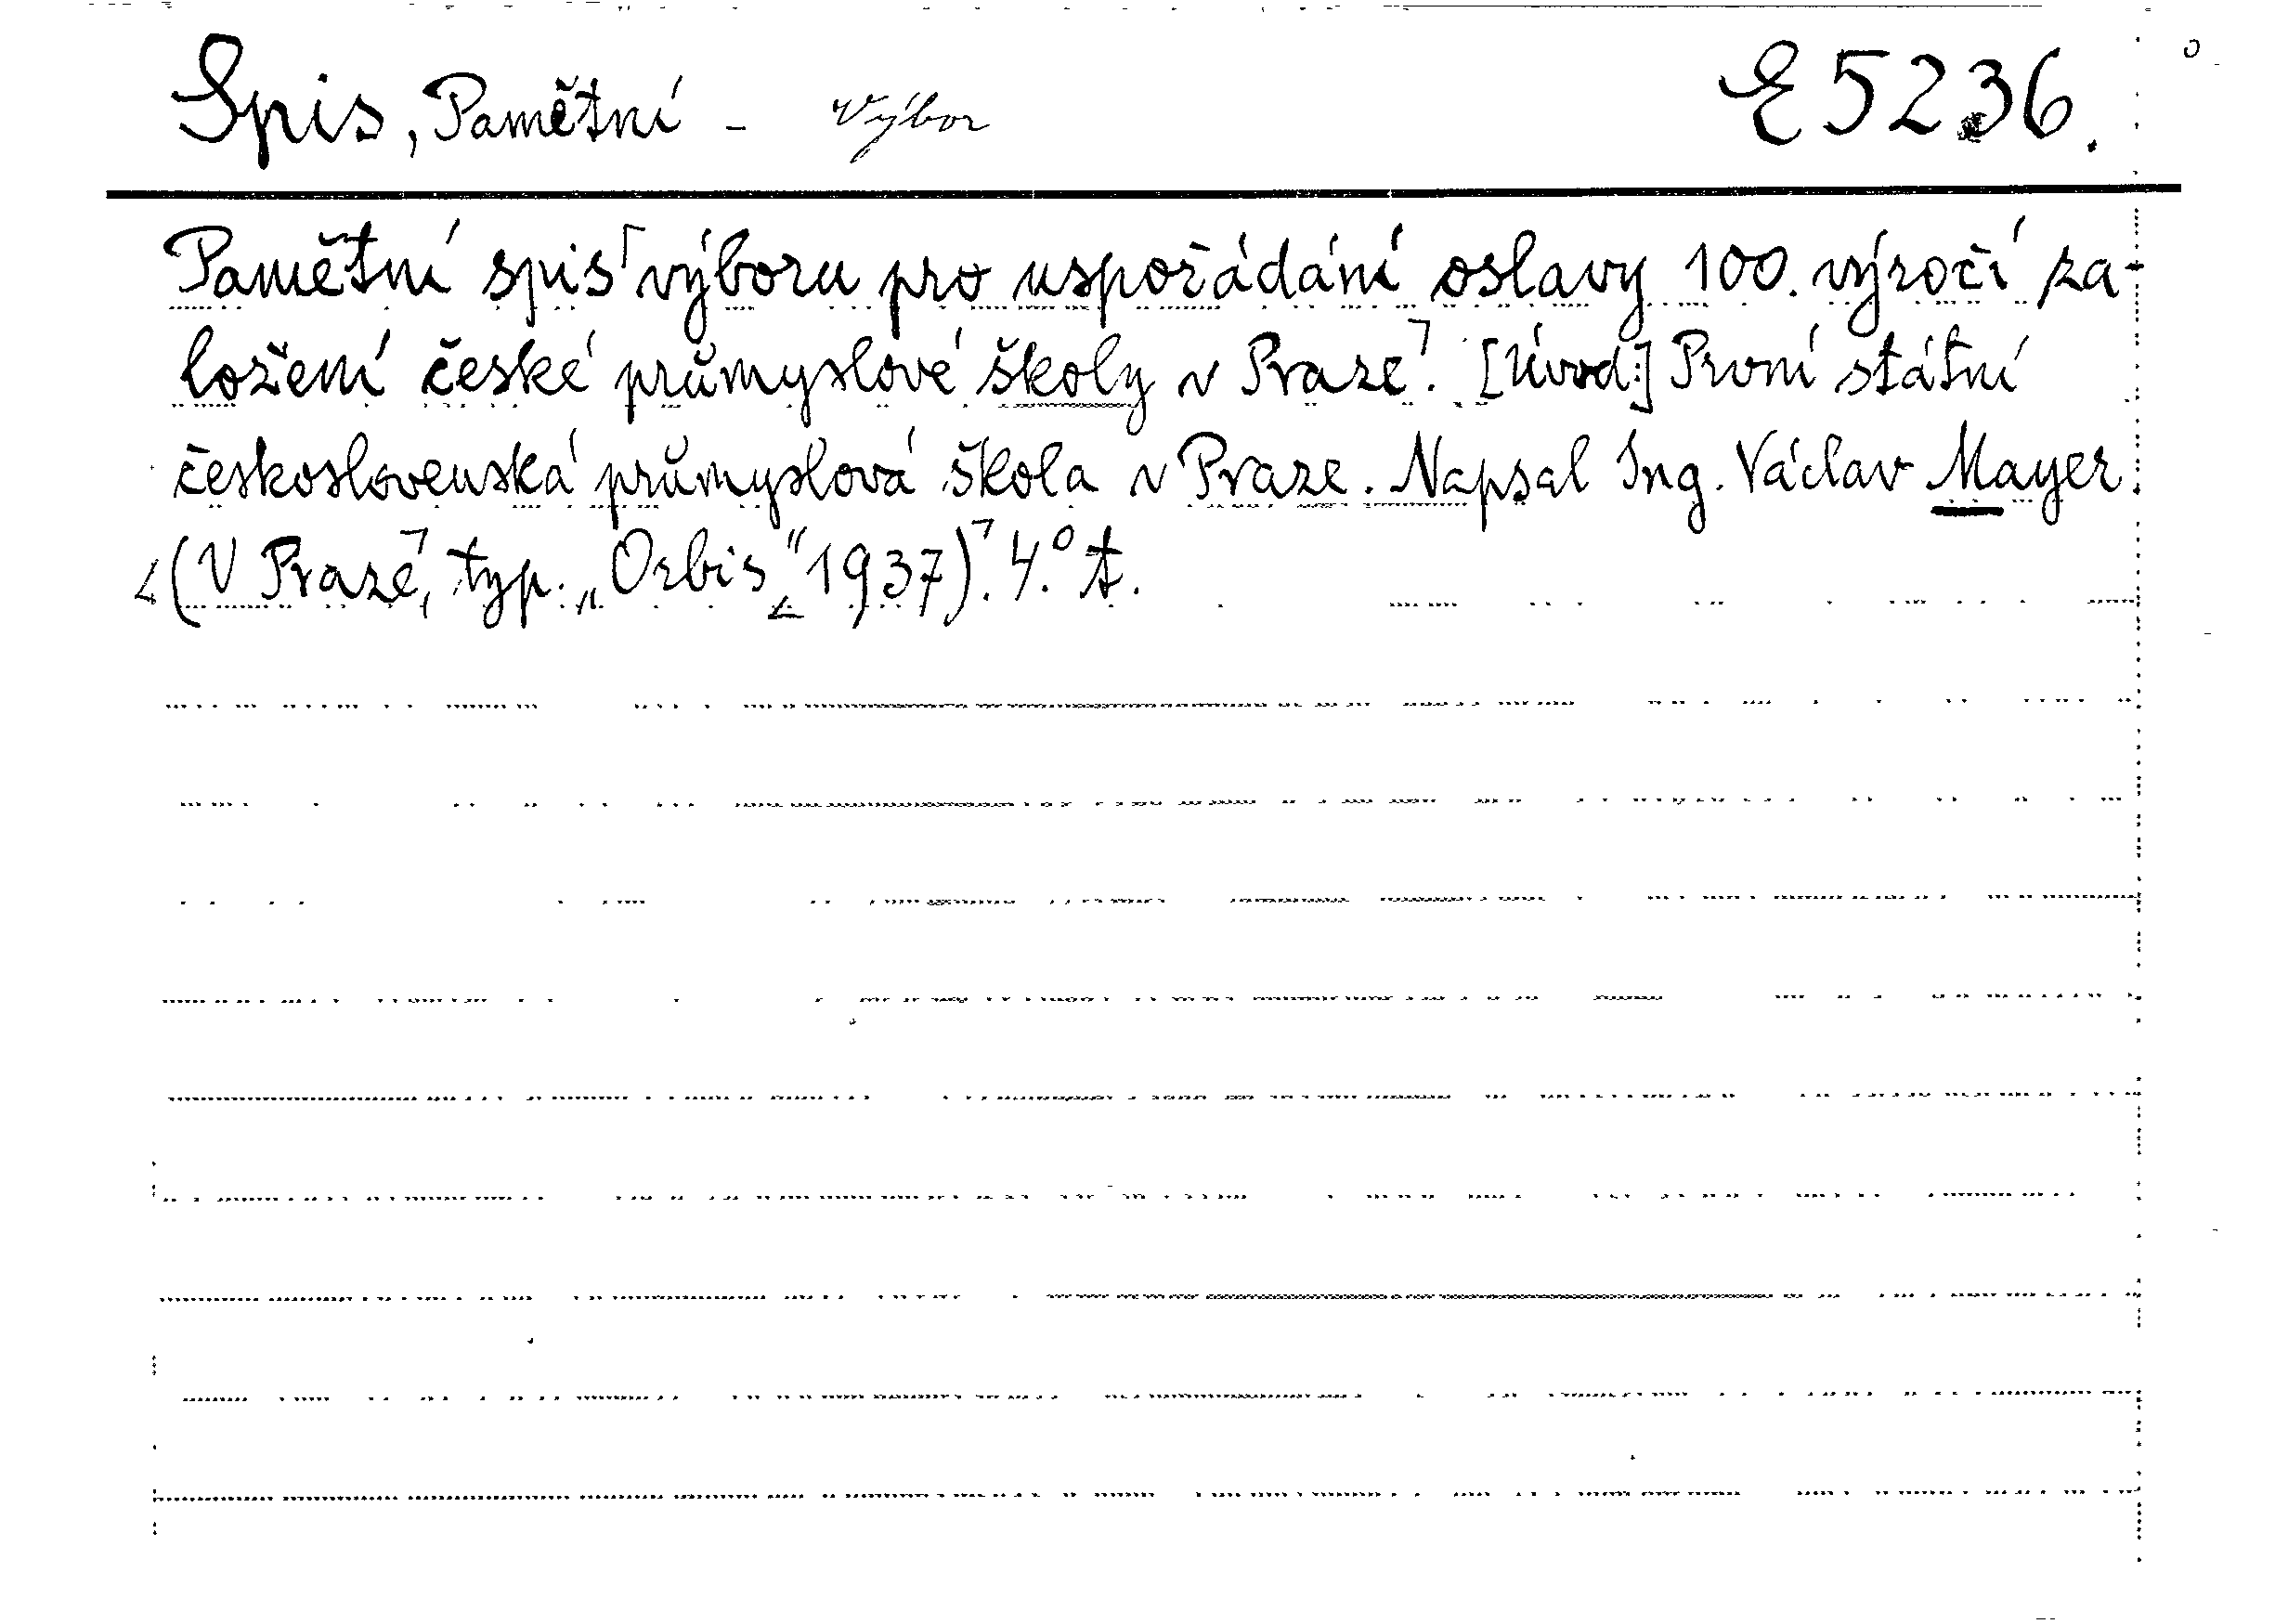 Spis, Pamětní - Výbor E 5236.
Pamětní spis výboru pro uspořádání oslavy 100. výročí za-
ložení české průmyslové školy v Praze. [Úvod:] První státní
československá průmyslová škola v Praze. Napsal Ing. Václav Mayer.
(V Praze, typ. „Orbis" 1937). 4.° A.